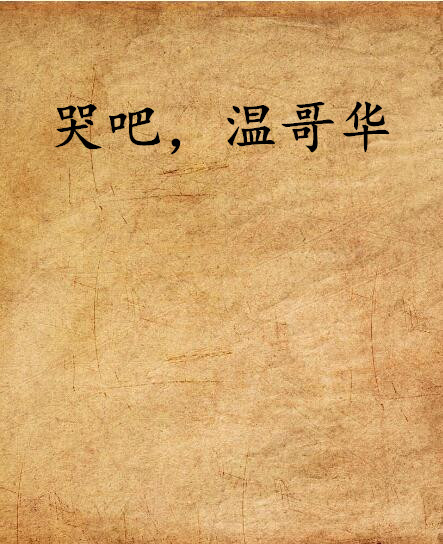 哭吧，温哥华